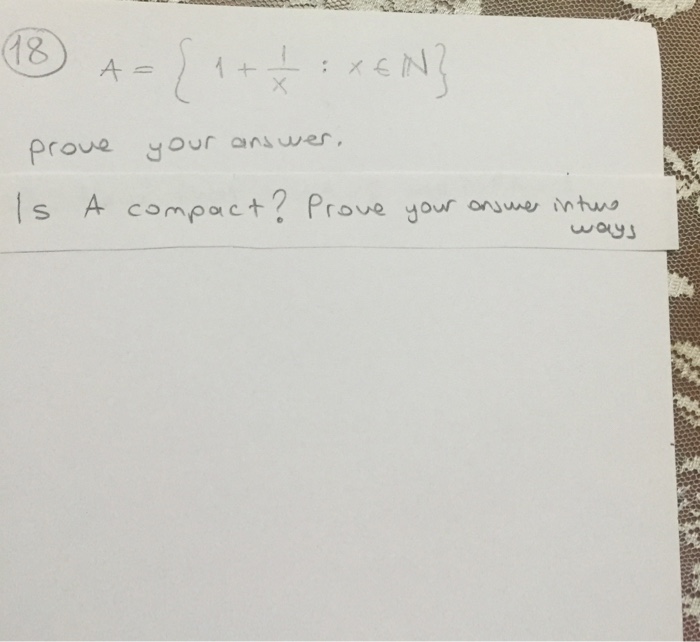 18 A = { 1 + 1/x : x ∈ ℕ }
prove your answer.
Is A compact? Prove your answer in two
ways